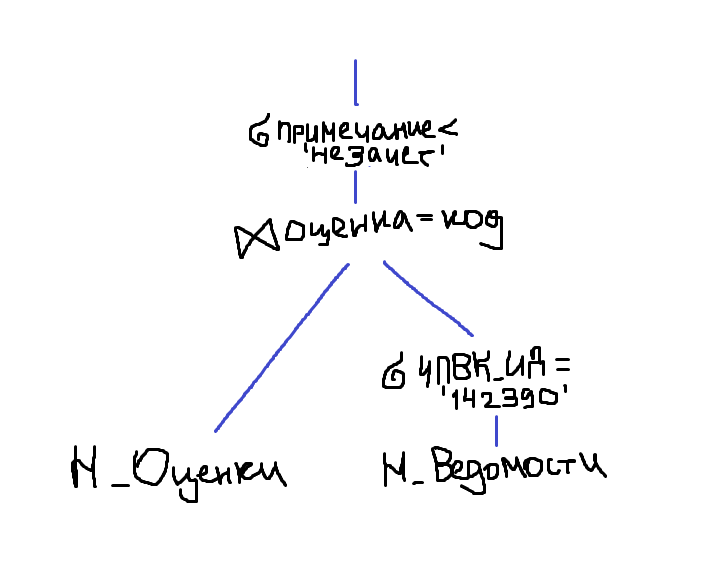 σ примечание <
'незачет'
⋈ оценка = код
σ ЧЛВК_ИД =
'142390'
Н_Оценки
Н_Ведомости